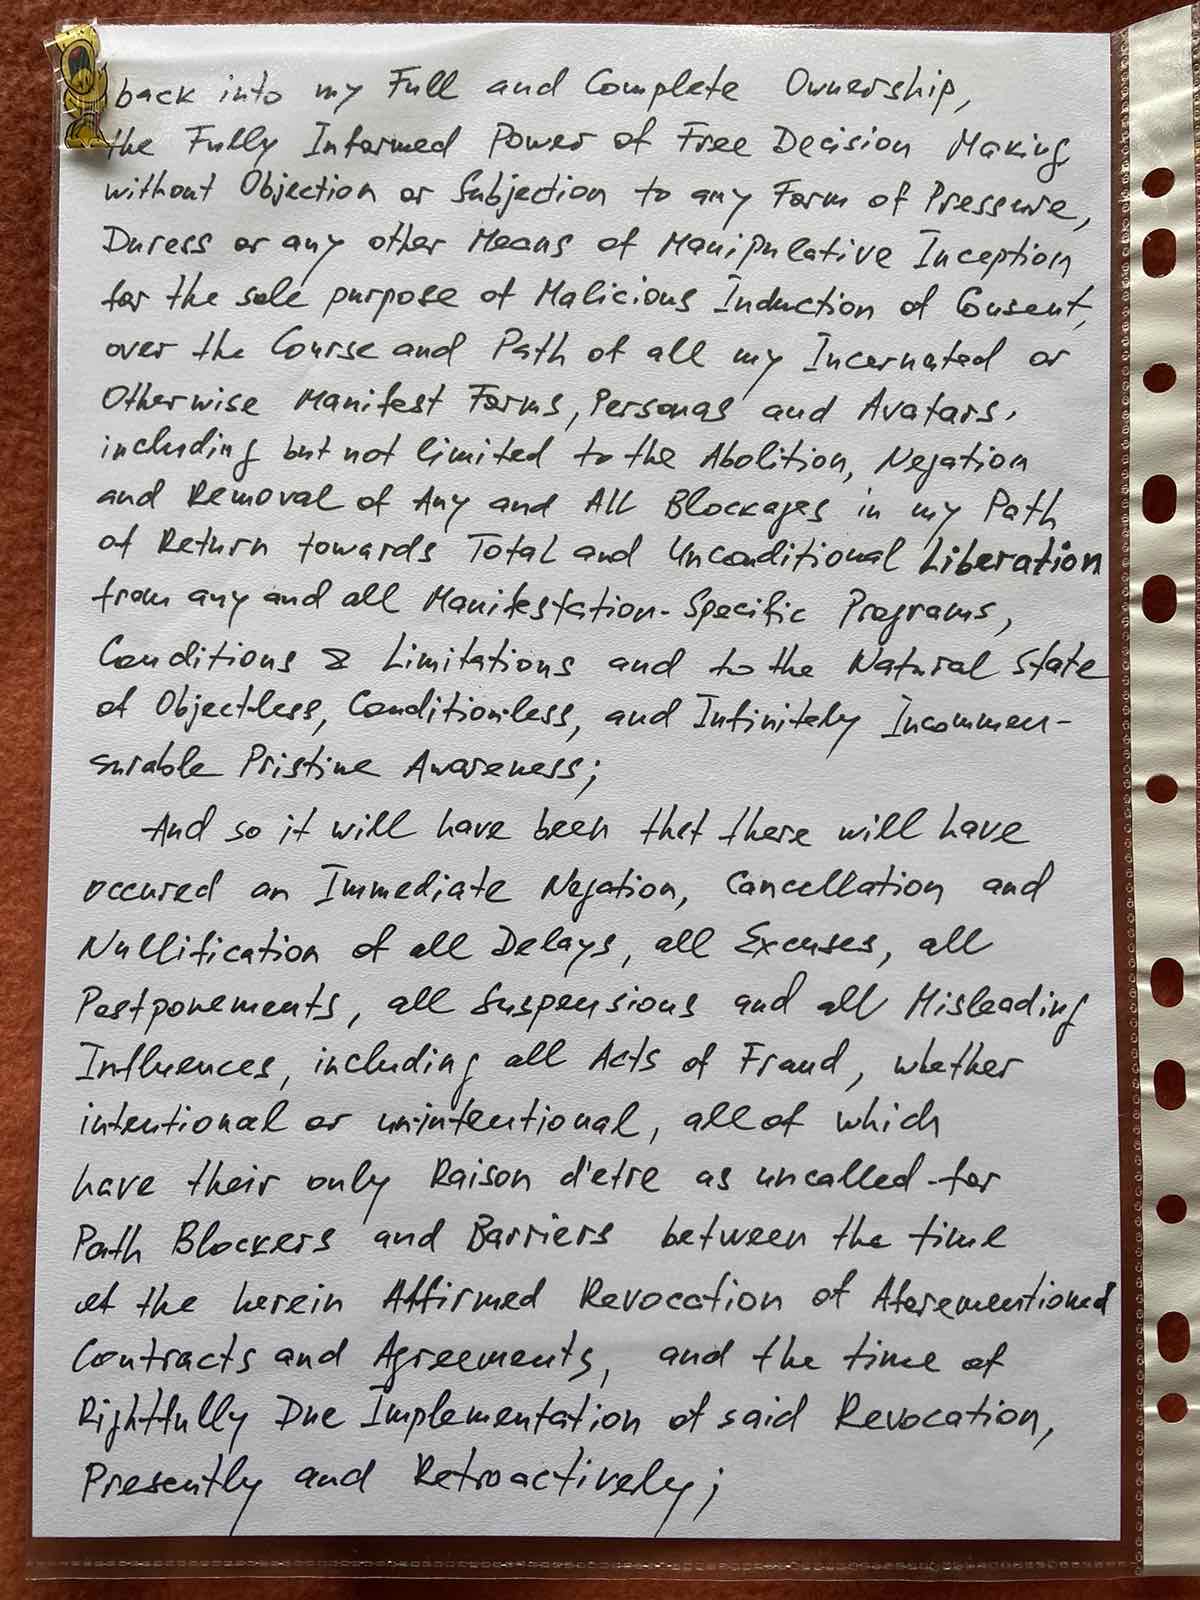 back into my Full and Complete Ownership,
the Fully Informed Power of Free Decision Making
without Objection or Subjection to any Form of Pressure,
Duress or any other Means of Manipulative Inception
for the sole purpose of Malicious Induction of Consent,
over the Course and Path of all my Incarnated or
Otherwise Manifest Forms, Personas and Avatars,
including but not limited to the Abolition, Negation
and Removal of Any and All Blockages in my Path
of Return towards Total and Unconditional Liberation
from any and all Manifestation-Specific Programs,
Conditions & Limitations and to the Natural State
of Objectless, Conditionless, and Infinitely Incommen-
surable Pristine Awareness;
And so it will have been that there will have
occured an Immediate Negation, Cancellation and
Nullification of all Delays, all Excuses, all
Postponements, all Suspensions and all Misleading
Influences, including all Acts of Fraud, whether
intentional or unintentional, all of which
have their only Raison d'etre as uncalled-for
Path Blockers and Barriers between the time
of the herein Affirmed Revocation of Aforementioned
Contracts and Agreements, and the time of
Rightfully Due Implementation of said Revocation,
Presently and Retroactively;